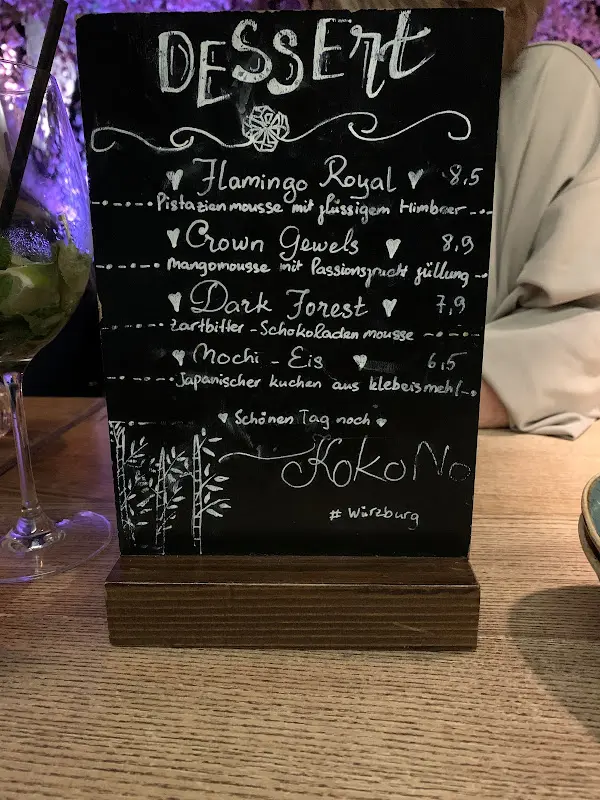 DESSErt
Flamingo Royal 8,5
Pistazienmousse mit flüssigem Himbeer
Crown Gewels 8,9
Mangomousse mit Passionsfrucht füllung
Dark Forest 7,9
Zartbitter - Schokoladen mousse
Mochi - Eis 6,5
Japanischer kuchen aus klebeismehl
Schönen Tag noch
KokoNo
# Würzburg